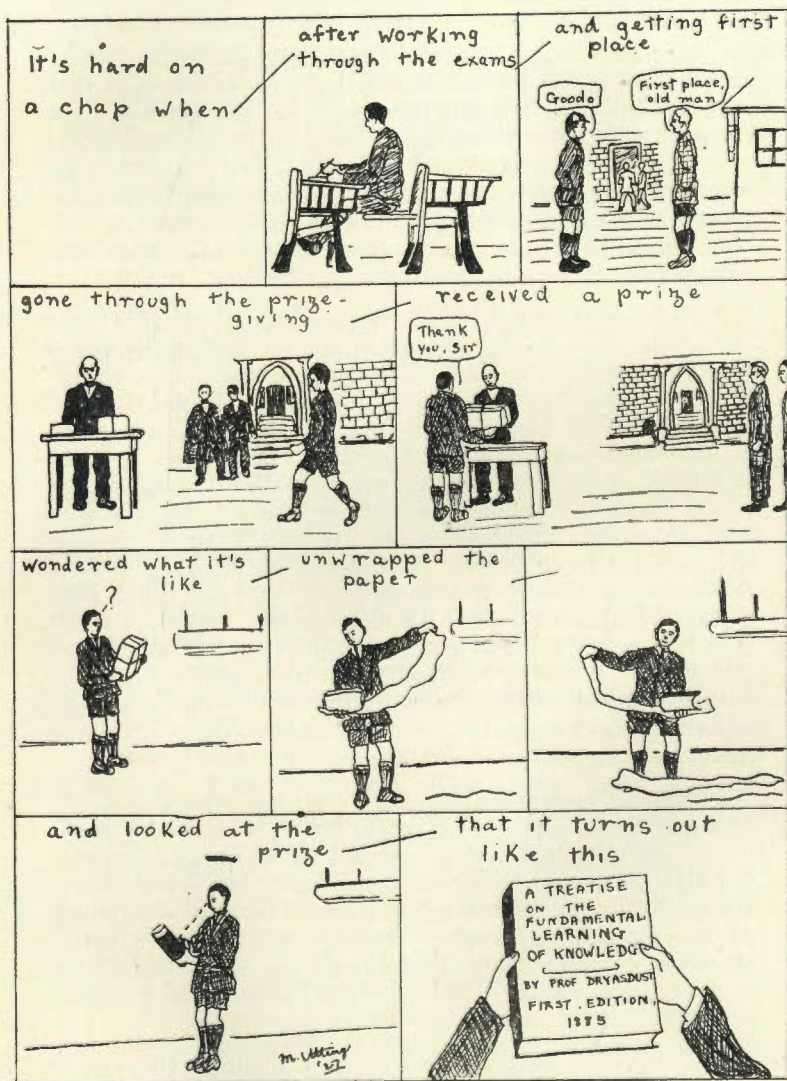 It's hard on
a chap when
after working
through the exams
and getting first
place
Goodo
First place,
old man
gone through the prize-
giving
received a prize
Thank
you, Sir
wondered what it's
like
?
unwrapped the
paper
and looked at the
prize
that it turns out
like this
A TREATISE
ON THE
FUNDAMENTAL
LEARNING
OF KNOWLEDG
BY PROF DRYASDUST
FIRST. EDITION,
1885
M. Utting
'27